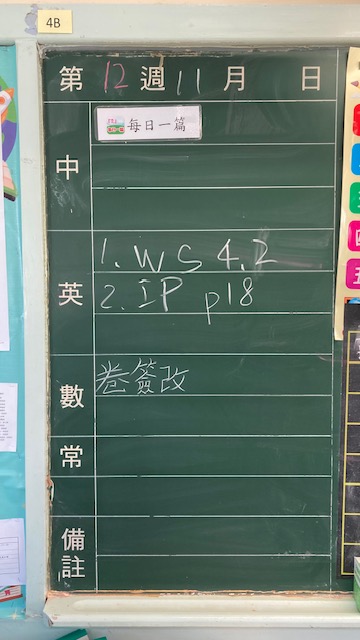 4B
第12週11月 日
中
每日一篇
英
1. WS 4.2
2. IP p18
數
卷簽改
常
備註
四
五